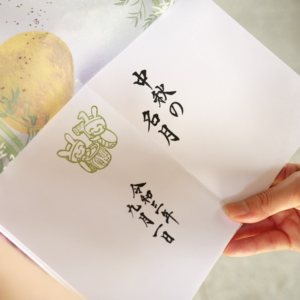 中秋の名月
令和三年
九月二十一日